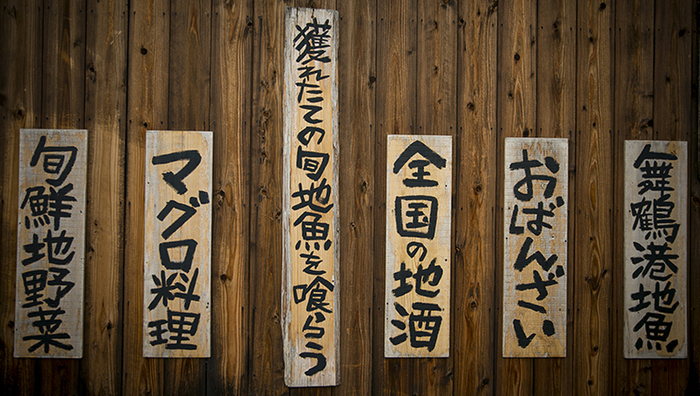 舞鶴港地魚
おばんざい
全国の地酒
獲れたての旬地魚を喰らう
マグロ料理
旬鮮地野菜